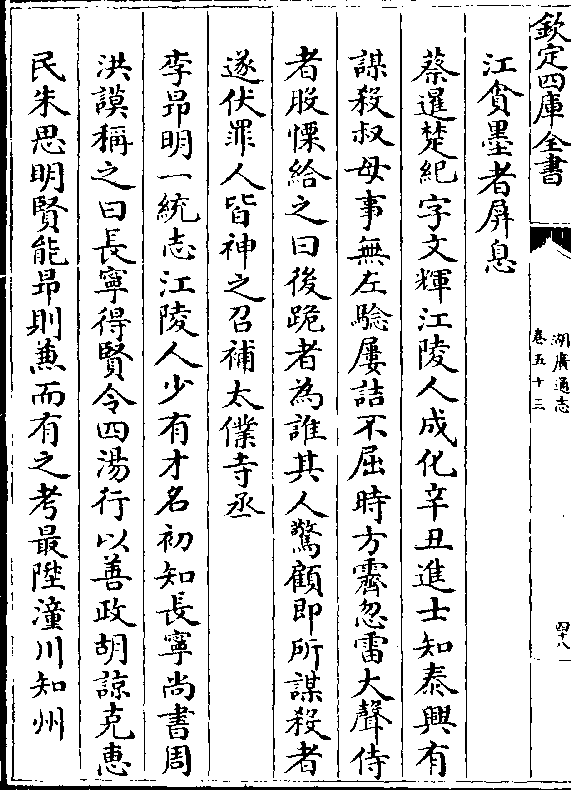 欽定四庫全書
湖廣通志
卷五十三
四十八
江貪墨者屏息
蔡暹楚紀字文輝江陵人成化辛丑進士知泰興有
謀殺叔母事無左驗屢詰不屈時方霽忽雷大聲侍
者股慄給之曰後跪者為誰其人驚顧即所謀殺者
遂伏罪人皆神之召補太僕寺丞
李昻明一統志江陵人少有才名初知長寧尚書周
洪謨稱之曰長寧得賢令四湯行以善政胡諒克惠
民朱思明賢能昻則兼而有之考最陞潼川知州